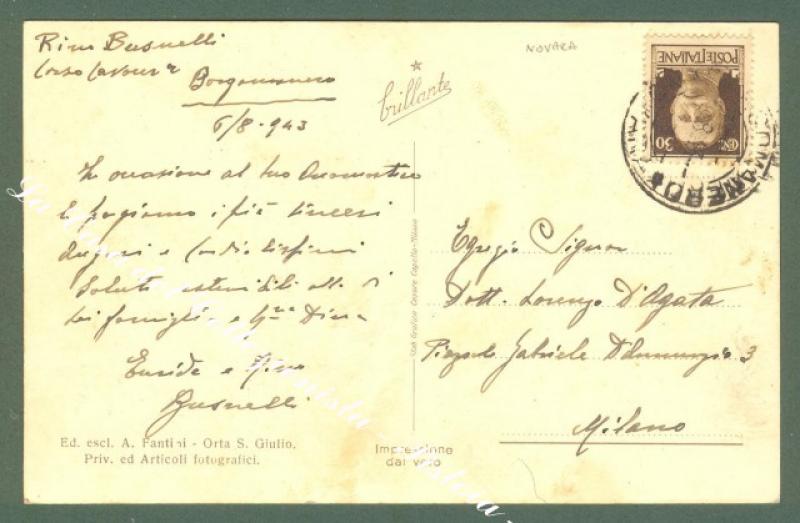 Rino Busnelli
Corso Cavour 2
Borgomanero
6/8-943
In occasione al tuo Onomastico
ti porgiamo i più sinceri
Auguri e cordialissimi
Saluti estensibili alla
famiglia e
Euride e Rino
Busnelli
Ed. escl. A. Fantini - Orta S. Giulio.
Priv. ed Articoli fotografici.
NOVARA
brillante
Stab Grafico Cesare Capello-Milano
Impressione
dal vero
POSTE ITALIANE
CENT. 30
Egregio Signor
Dott. Lorenzo D'Agata
Piazzale Gabriele D'Annunzio 3
Milano